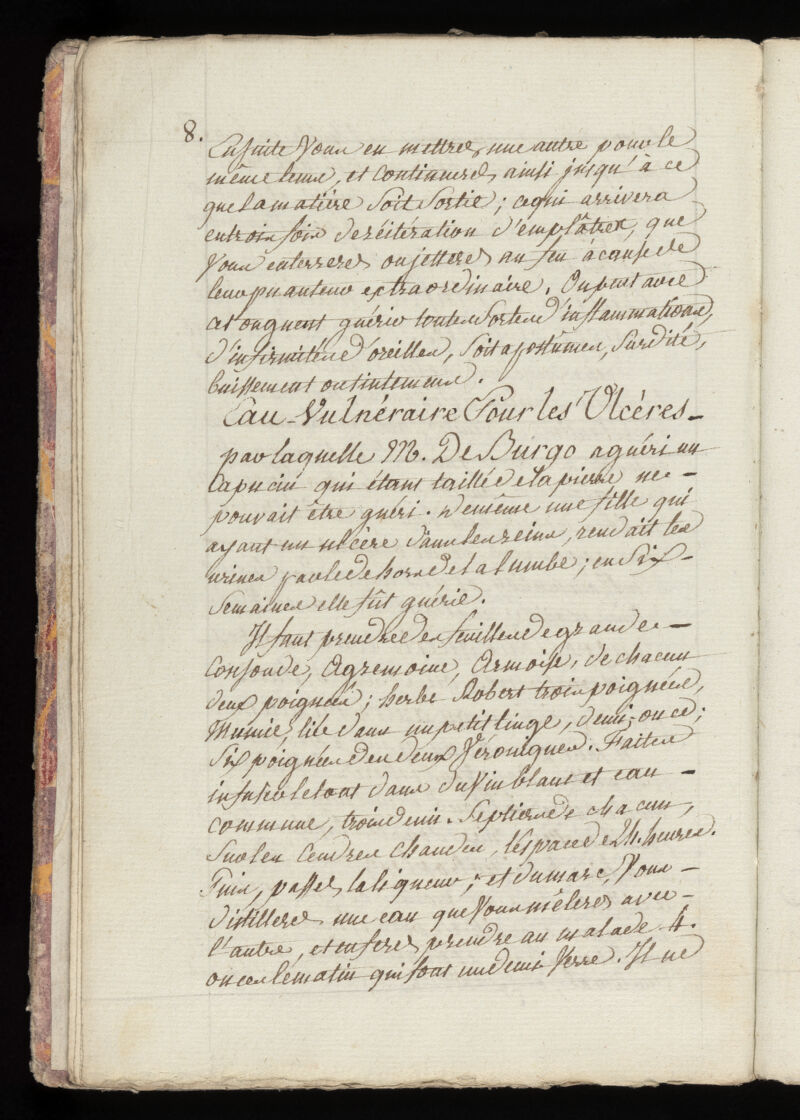 8.
Ensuite Vous en mettres, une autre pour le
même tems, et continueres, ainsi jusqu'à ce
que la matière soit sortie; ce qui arrivera
en trois fois de réitération d'emplâtres, que
Vous enterreres ou jetteres au feu à cause de
leur puanteur extraordinaire. On peut avec
cet onguent guérir toutes sortes d'inflammations,
d'infirmités d'oreilles, soit apostûmes, surdité,
buissement ou tintemens.
Eau-Vulnéraire Pour les Ulcéres-
par laquelle M. De Burgo a guéri un
Capucin qui étant taillé de la pierre ne-
pouvait être guéri. De même une fille qui
ayant un ulcère dans les reins, rendait les
urines par le dehors de la lumbe; en Six-
Semaines elle fût guérie.
Il faut prendre des feuilles de grande-
Consoude, Agremoine, Armoise, de chacun
deux poignées; herbe Robert trois poignées,
Mumie, liée dans un petit linge, demi-once;
Six poignées des deux Véroniques. Faites
infuser le tout dans du Vin blanc et eau-
commune, trois demi-Septiers de chacun,
Sur les Cendres chaudes, l'éspace de 24. heures.
Puis, passes, la liqueur; et du marc, Vous-
distilleres une eau que Vous mêleres avec-
l'autre, et en feres prendre au malade 4.
onces le matin qui font un demi-Verre. Il ne